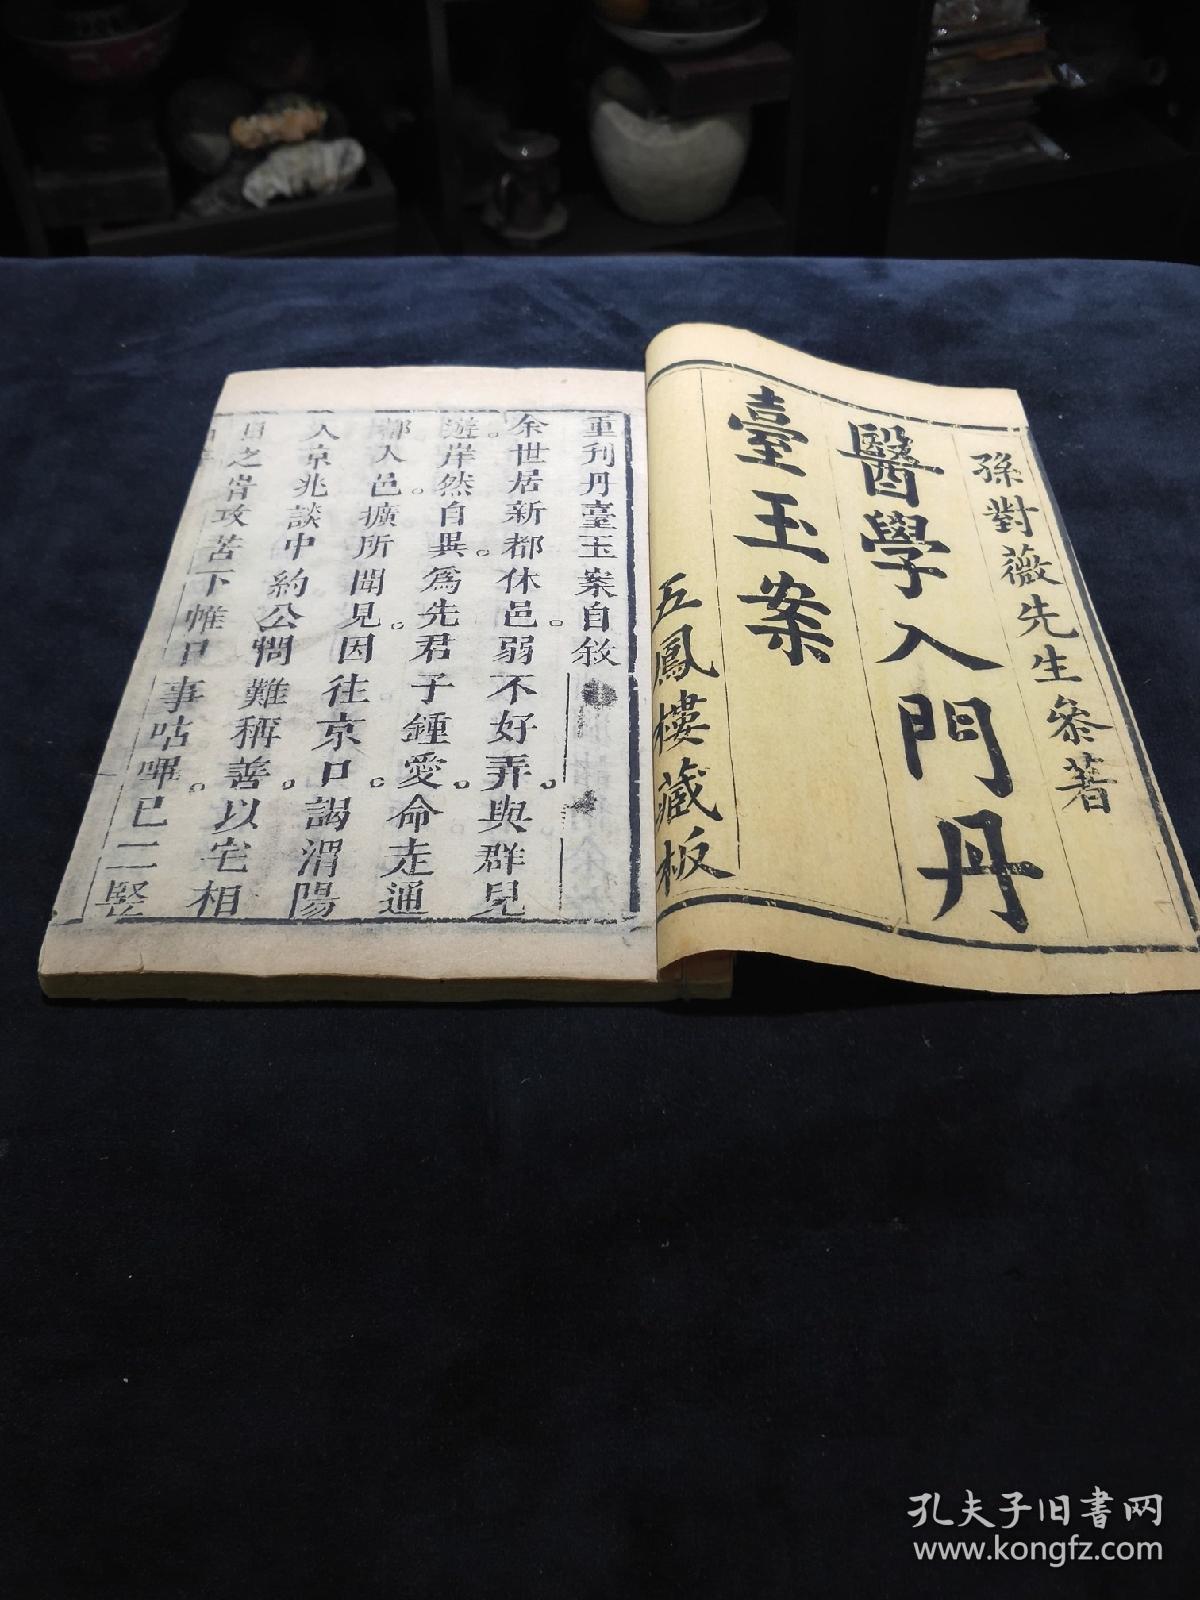 孫對薇先生叅著
醫學入門丹
臺玉案
五鳳樓藏板
重刋丹臺玉案自敘
余世居新都休邑。弱不好弄。與群兒
遊。岸然自異。為先君子鍾愛。命走通
都入邑。擴所聞見。因往京口。謁渭陽
京兆談中約公。憫難稱善。以宅相
之。胥攻苦下帷
事呫嗶。已二竪
孔夫子旧书网
www.kongfz.com